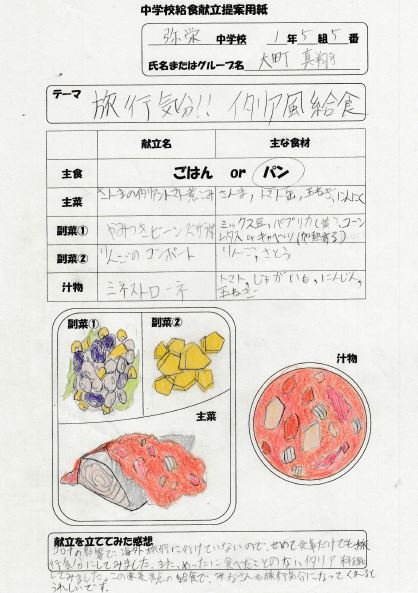 中学校給食献立提案用紙
弥栄 中学校 1年5組5番
氏名またはグループ名 大町 真翔
テーマ
旅行気分!! イタリア風給食
献立名 主な食材
主食 ごはん or パン
主菜 さんまのイタリアントマト煮こみ さんま、トマト缶、玉ねぎ、にんにく
副菜① やみつきビーンズサラダ ミックス豆、パプリカ(黄)、コーン
レタス or キャベツ(加熱する)
副菜② りんごのコンポート りんご、さとう
汁物 ミネストローネ トマト、じゃがいも、にんじん、
玉ねぎ
副菜① 副菜②
汁物
主菜
献立を立ててみた感想
コロナの影響で、海外旅行に行けていないので、せめて食事だけでも旅
行気分にしてみました。また、めったに食べたことのないイタリア料理に
してみました。この献立の給食で、みなさんも旅行気分になってくれると
うれしいです。